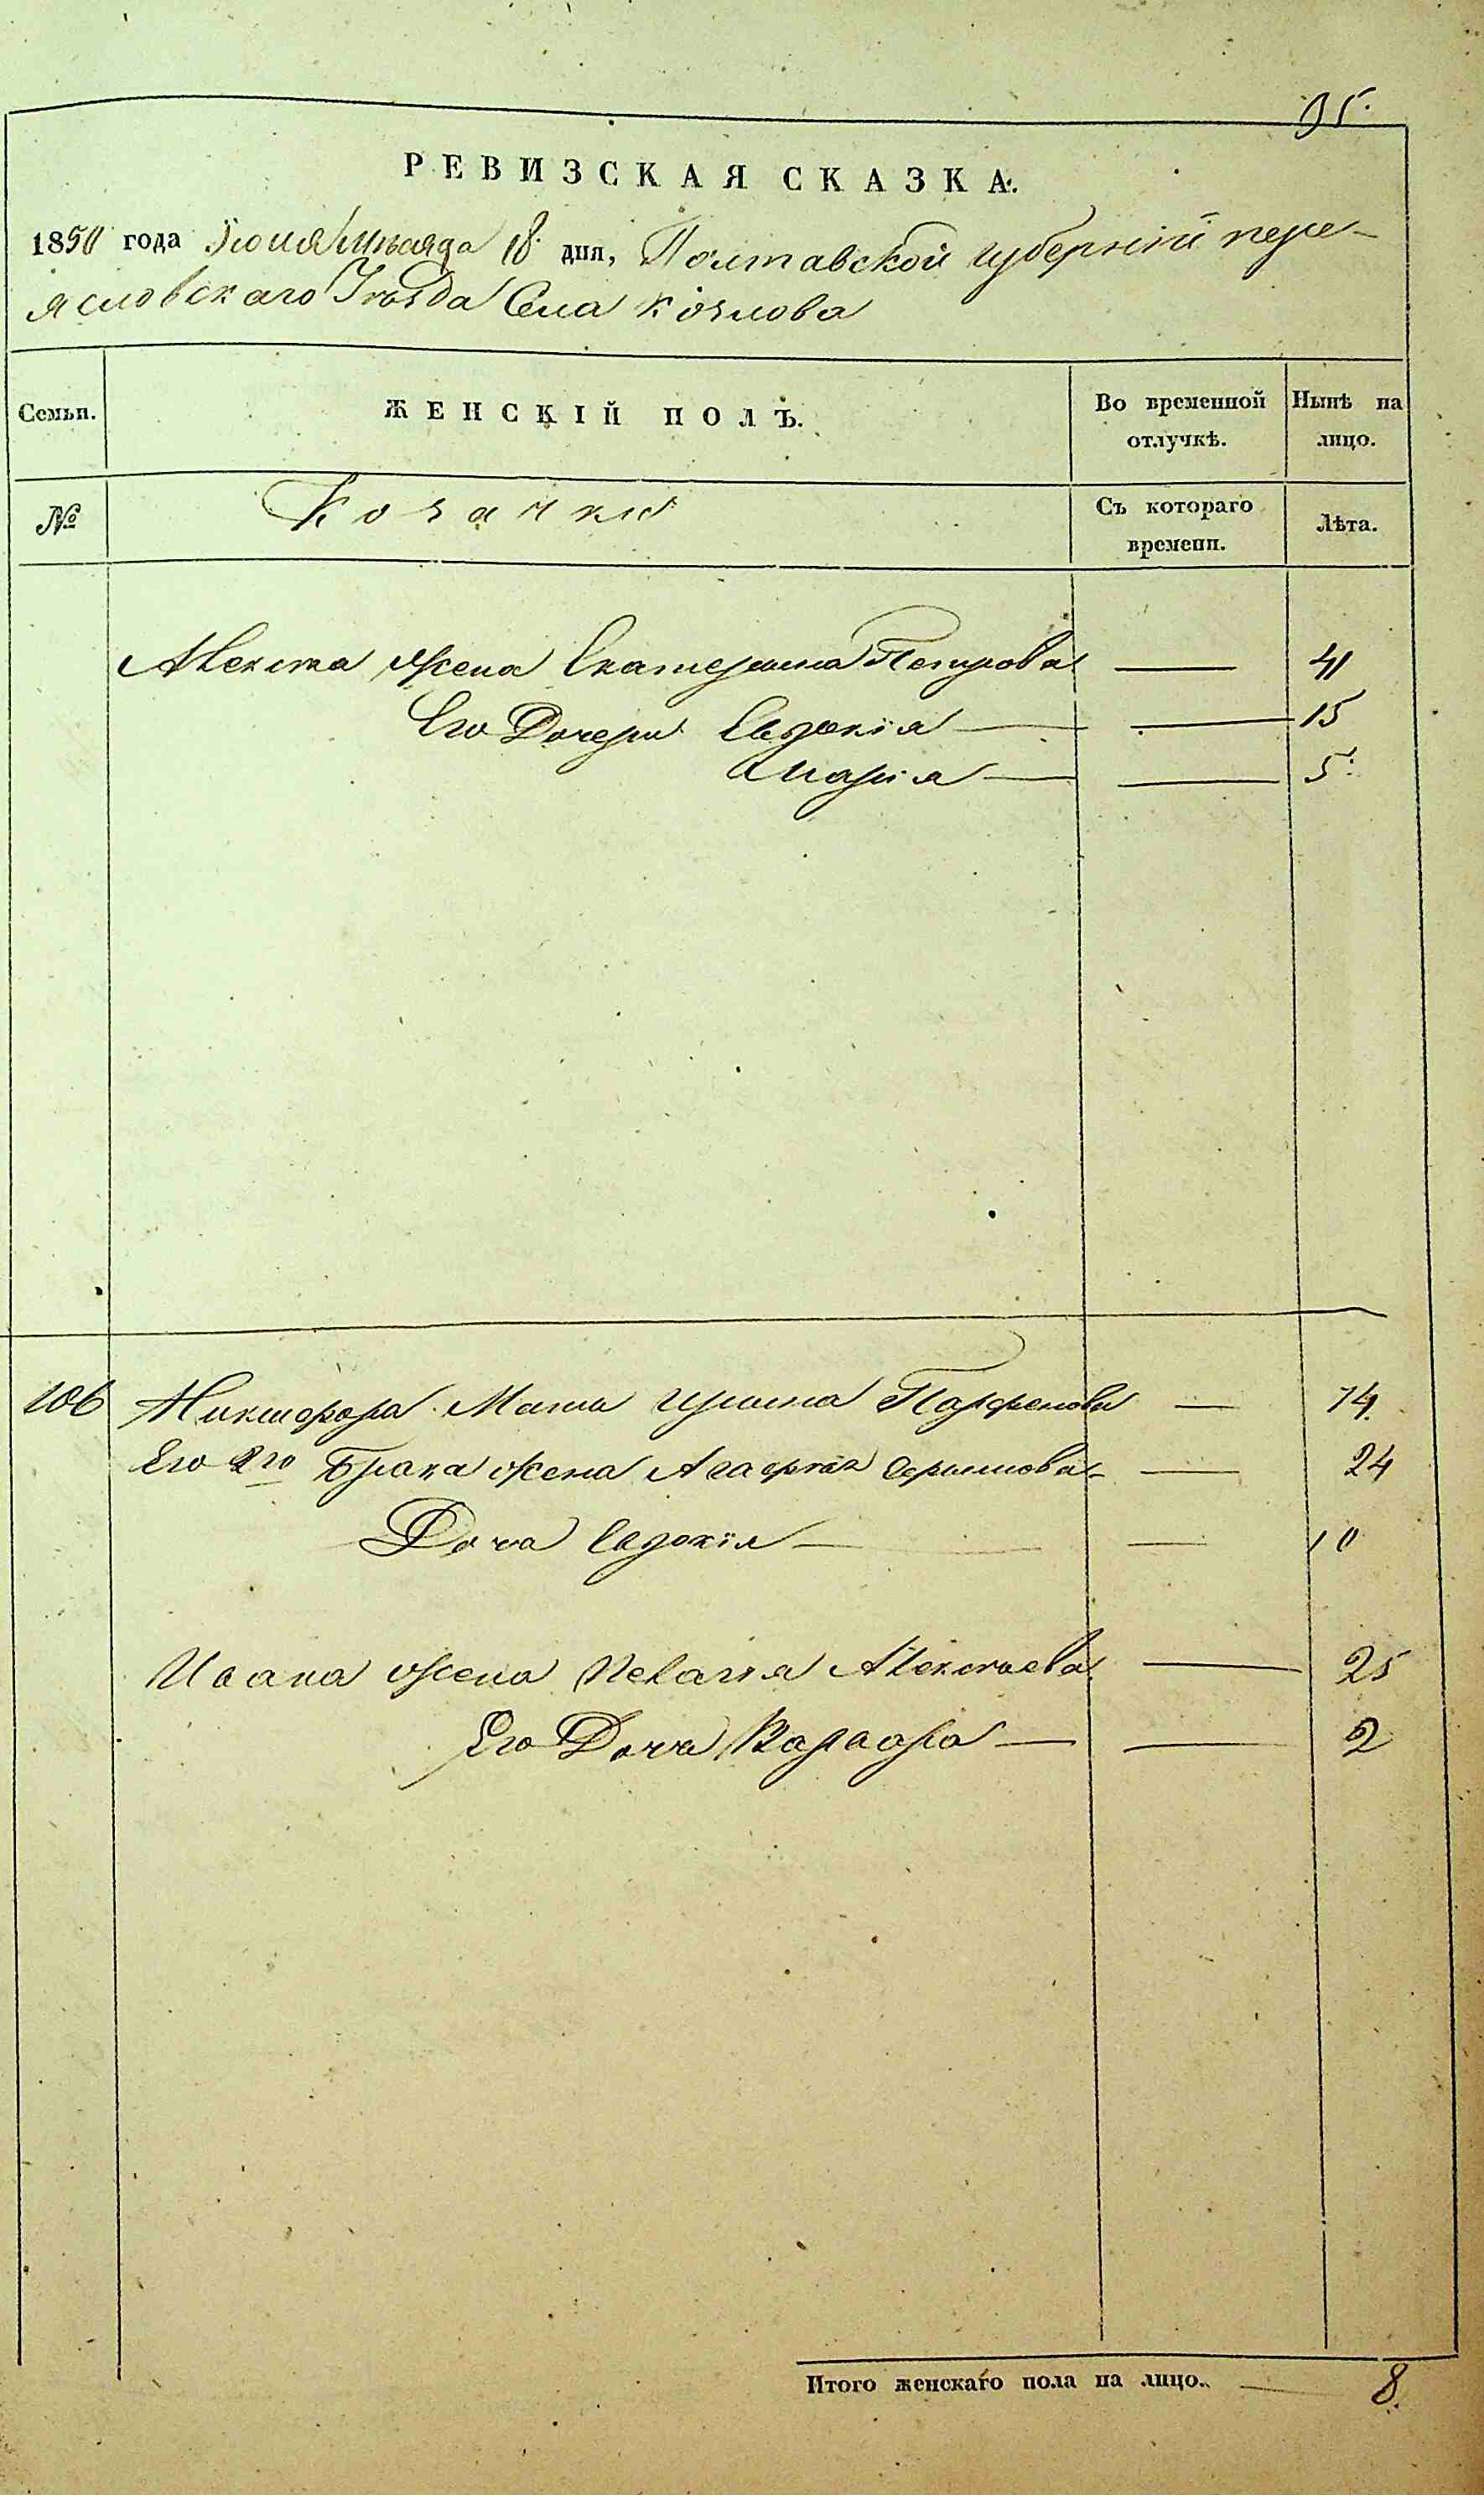 95.
РЕВИЗСКАЯ СКАЗКА.
1850 года Іюня Мѣсяца 18 дня, Полтавской губерніи пере-
ясловскаго Уѣзда Села Козлова
Семьи.
ЖЕНСКІЙ ПОЛЪ.
Во временной отлучкѣ.
Нынѣ на лицо.
№
Козачки
Съ котораго времени.
Лѣта.
жена Екатерина Петрова — 41
Его Дочери Евдокія — — 15
Марія — — 5.
106 Никифора Мать Ирина Парфенова — 74.
Его 2го Брака жена Агафія — 24
Доча Евдокія — — 10
Ивана жена Пелагія Алексѣева — 25
Его Доча Варвара — — 2
Итого женскаго пола на лицо. — 8.